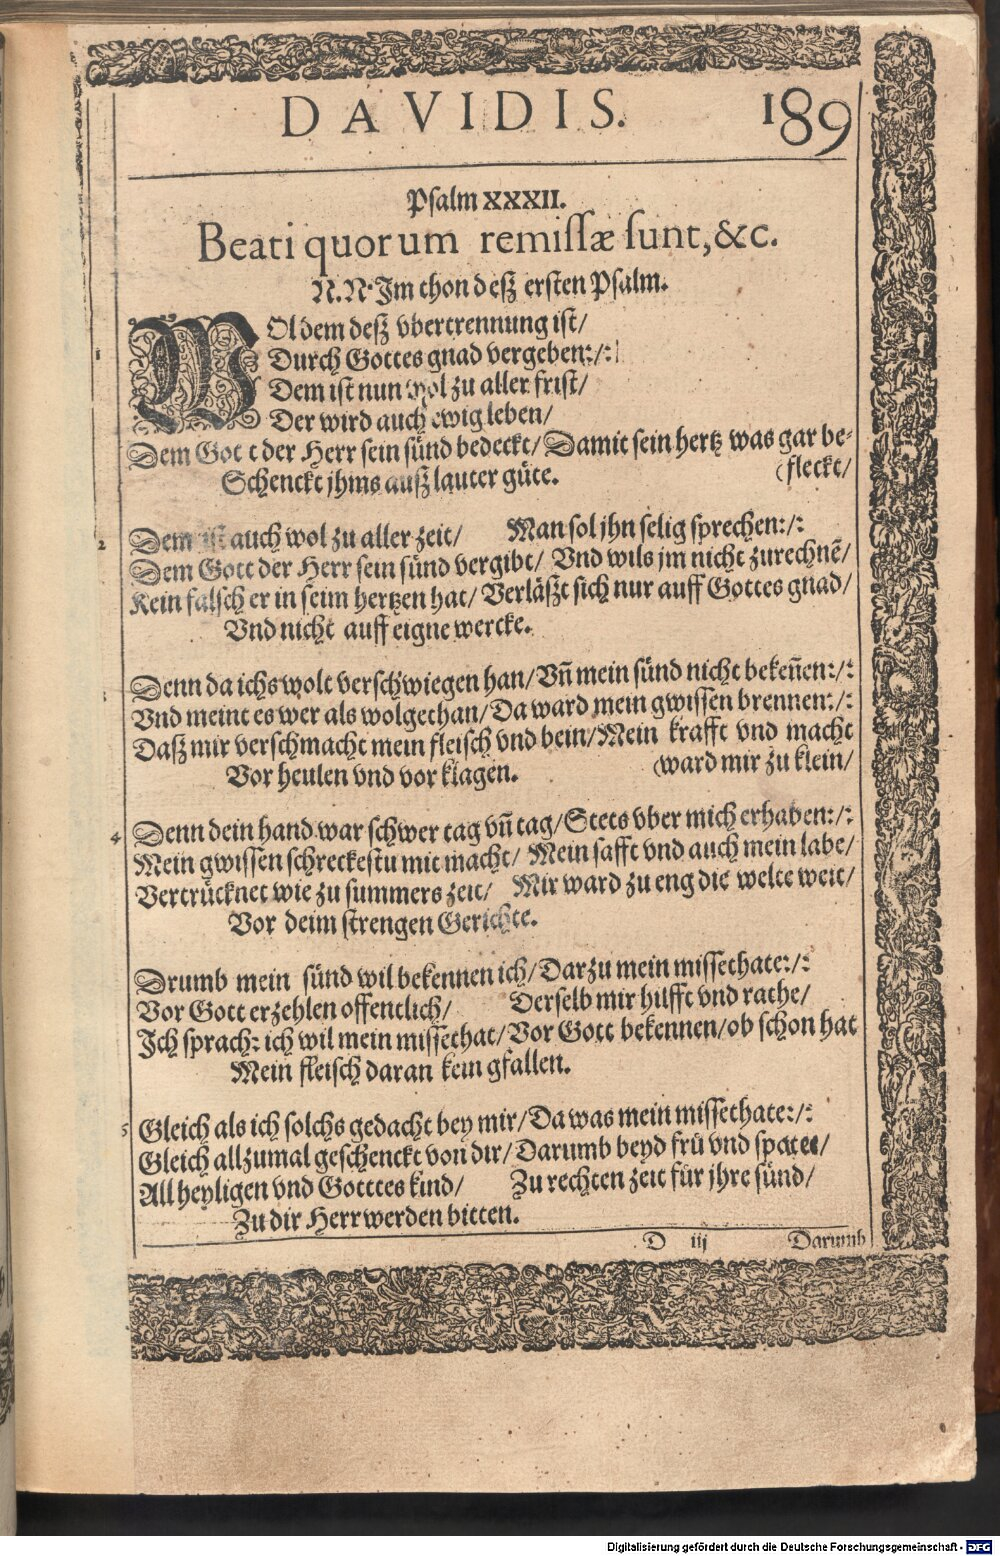 DAVIDIS. 189
Psalm XXXII.
Beati quorum remissæ sunt, &c.
N.N. Im thon desz ersten Psalm.
1 WOl dem desz vbertrennung ist/
Durch Gottes gnad vergeben:/:
Dem ist nun wol zu aller frist/
Der wird auch ewig leben/
Dem Gott der Herr sein sünd bedeckt/ Damit sein hertz was gar be-
Schenckt jhms ausz lauter güte. (fleckt/
2 Dem ist auch wol zu aller zeit/ Man sol jhn selig sprechen:/:
Dem Gott der Herr sein sünd vergibt/ Vnd wils jm nicht zurechnē/
Kein falsch er in seim hertzen hat/ Verläszt sich nur auff Gottes gnad/
Vnd nicht auff eigne wercke.
Denn da ichs wolt verschwiegen han/ Vñ mein sünd nicht bekeñen:/:
Vnd meint es wer als wolgethan/ Da ward mein gwissen brennen:/:
Dasz mir verschmacht mein fleisch vnd bein/ Mein krafft vnd macht
Vor heulen vnd vor klagen. (ward mir zu klein/
4 Denn dein hand war schwer tag vñ tag/ Stets vber mich erhaben:/:
Mein gwissen schreckestu mit macht/ Mein safft vnd auch mein labe/
Vertrücknet wie zu summers zeit/ Mir ward zu eng die welte weit/
Vor deim strengen Gerichte.
Drumb mein sünd wil bekennen ich/ Darzu mein missethate:/:
Vor Gott erzehlen offentlich/ Derselb mir hilfft vnd rathe/
Ich sprach: ich wil mein missethat/ Vor Gott bekennen/ ob schon hat
Mein fleisch daran kein gfallen.
5 Gleich als ich solchs gedacht bey mir/ Da was mein missethate:/:
Gleich allzumal geschenckt von dir/ Darumb beyd frü vnd spatet/
All heyligen vnd Gotttes kind/ Zu rechten zeit für jhre sünd/
Zu dir Herr werden bitten.
D iij Darumb
Digitalisierung gefördert durch die Deutsche Forschungsgemeinschaft - DFG